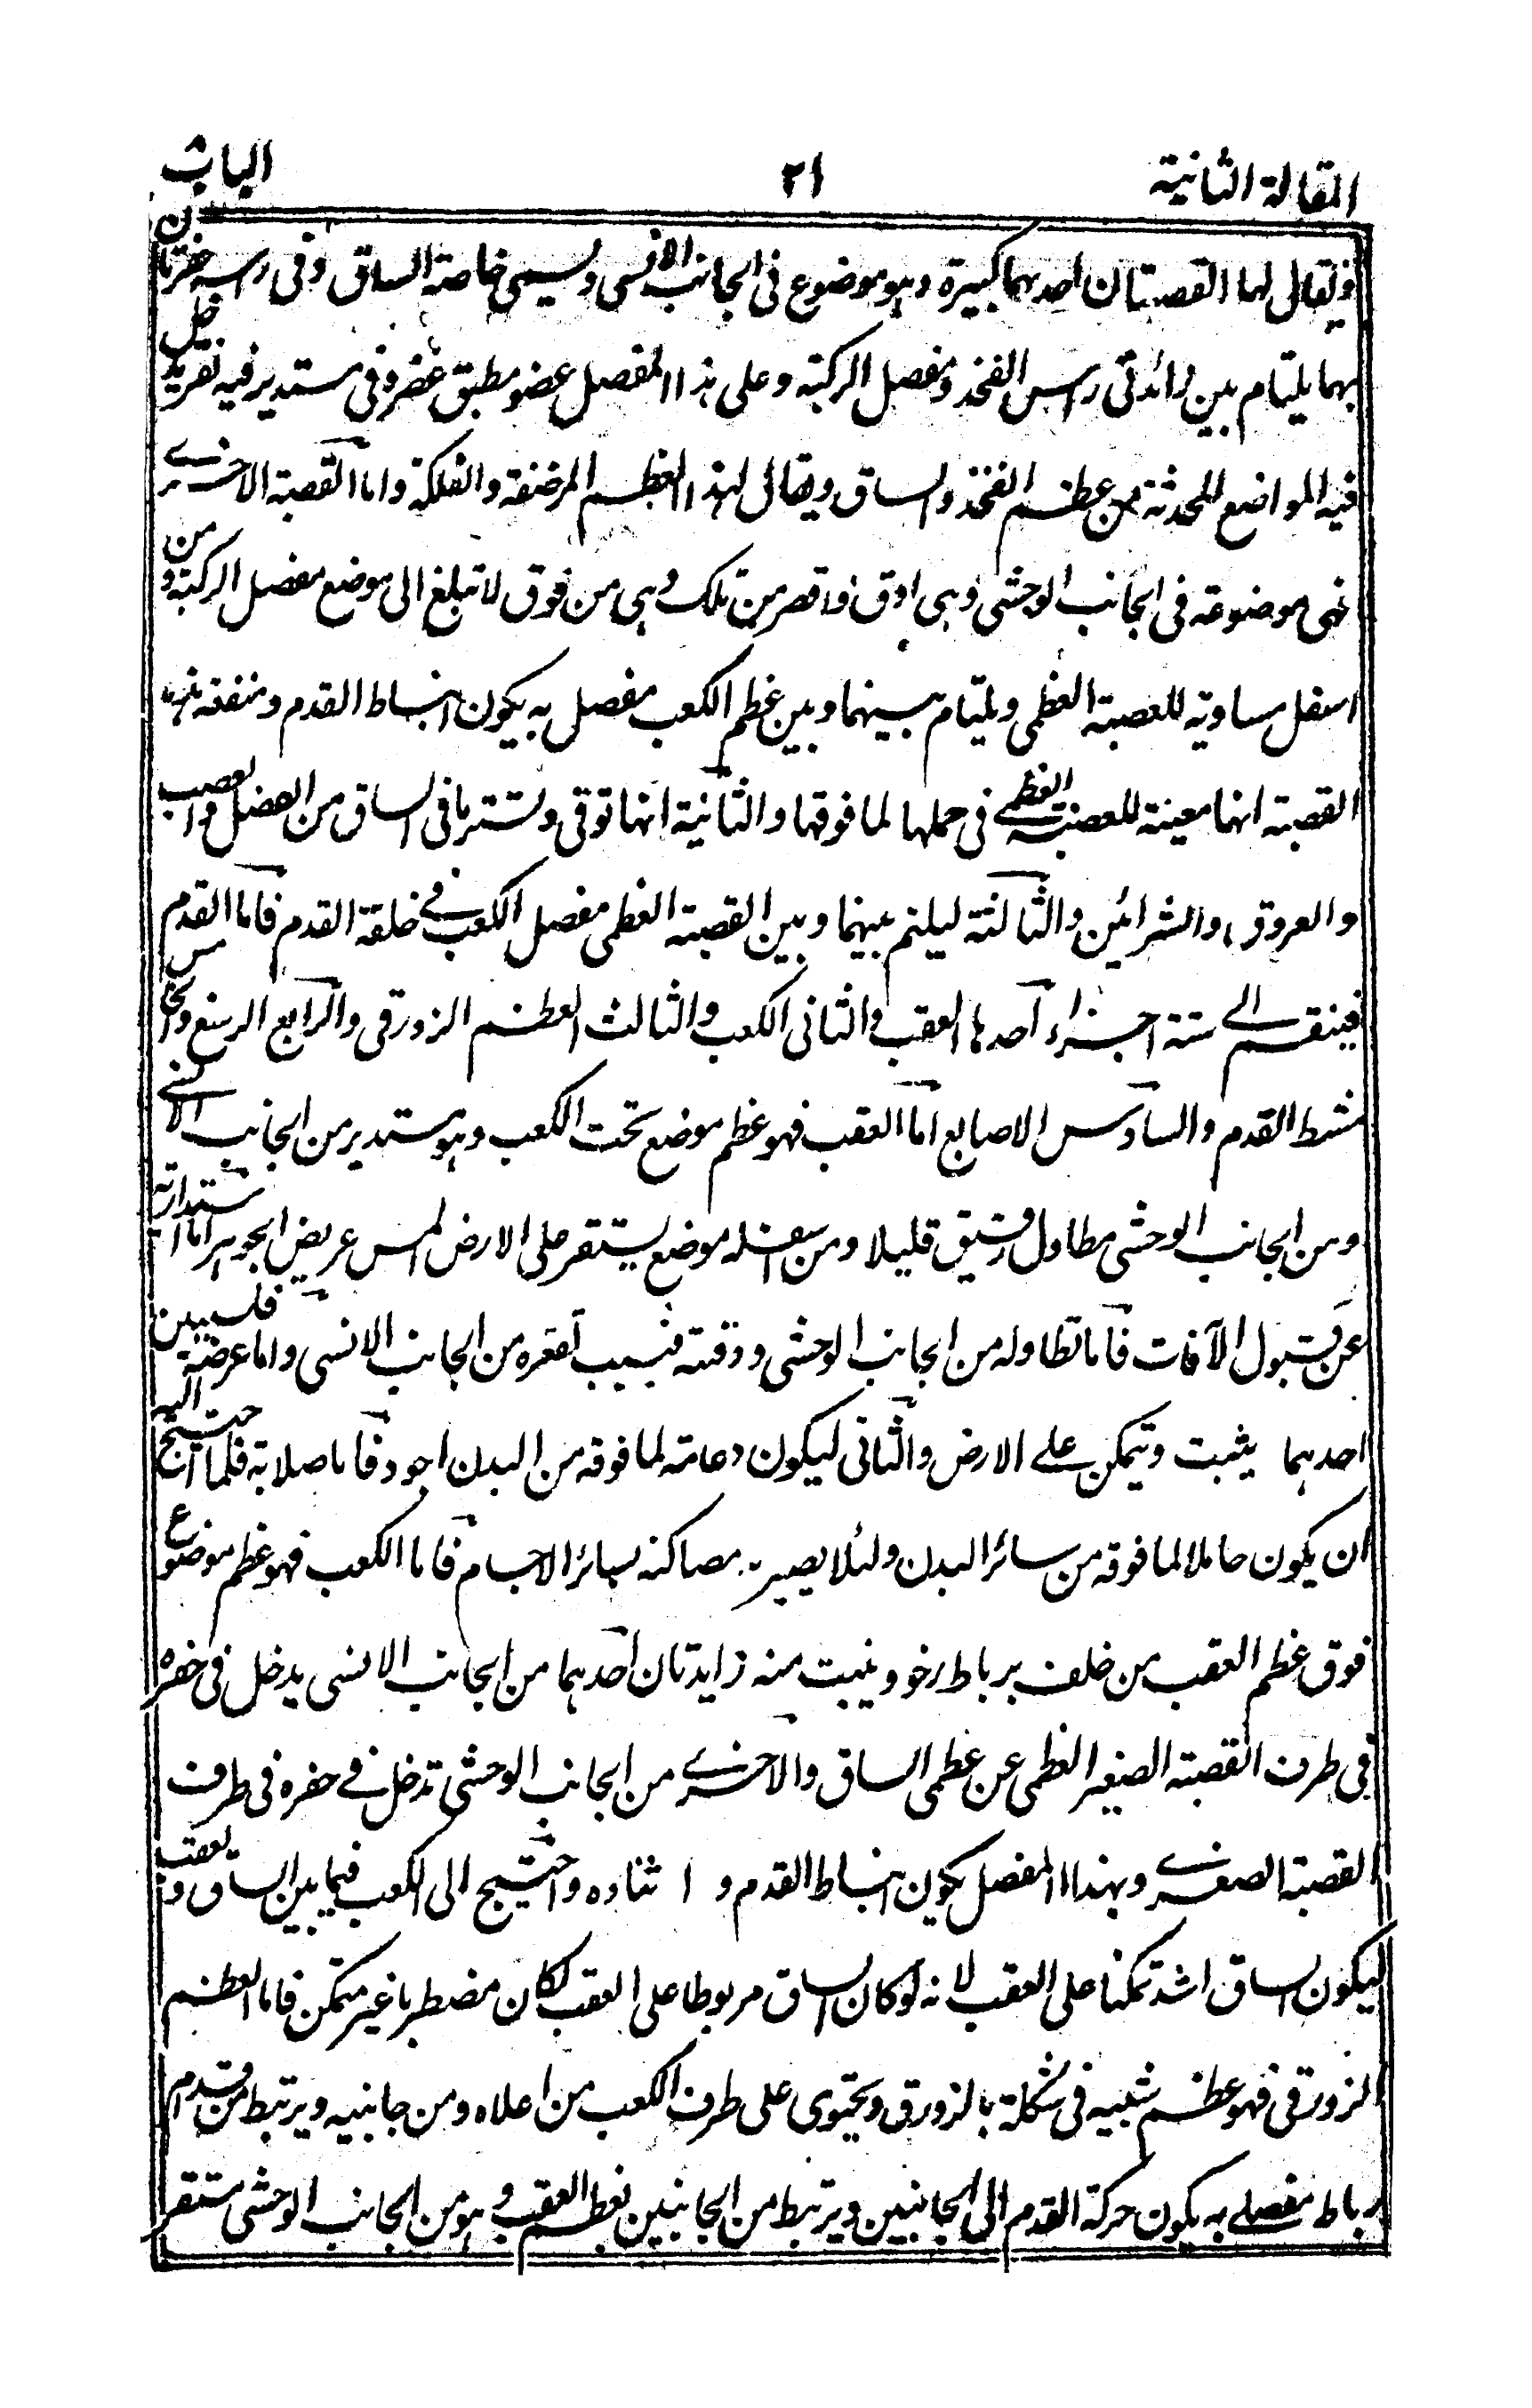 المقالة الثانية
٢١
الباب
ويقال لهما القصبتان احدهما كبيرة وهو موضوع فى الجانب الانسى ويسمى خاصة الساق وفى راسه حفرتان
بهما يلتيام بين زائدتى راس الفخذ ومفصل الركبة وعلى هذا المفصل عضو مطبق غضروفى مستدير فيه تقر يدخل
فيه المواضع المحدثة من عظم الفخذ والساق ويقال لهذا العظم المرضفة والفلكة واما القصبة الاخرى
فهى موضوعة فى الجانب الوحشى وهى ادق واقصر من تلك وهى من فوق لا تبلغ الى موضع مفصل الركبة ومن
اسفل مساوية للعصبة العظمى ويلتيام بينهما وبين عظم الكعب مفصل به يكون انبساط القدم ومنفعة هذه
القصبة انها معينة للعصبة العظمى فى حملها لما فوقها والثانية انها توقى وتستر ما فى الساق من العضل والعصب
والعروق والشرائين والثالثة ليلتم بينهما وبين القصبة العظمى مفصل الكعب فى خلقة القدم فاما القدم
فينقسم الى ستة اجزاء احدها العقب والثانى الكعب والثالث العظم الزورقى والرابع الرسغ والخامس
مشط القدم والسادس الاصابع اما العقب فهو عظم موضع تحت الكعب وهو مستدير من الجانب الانسى
ومن الجانب الوحشى مطاول رقيق قليلا ومن اسفله موضع يستقر على الارض املس عريض الجوهر اما استدارته
عن قبول الآفات فاما تطاوله من الجانب الوحشى ودقته فبسبب تقعره من الجانب الانسى واما عرضه فلسببين
احدهما يثبت ويتمكن على الارض والثانى ليكون دعامة لما فوقه من البدن اجود فاما صلابته فلما احتيج اليه
ان يكون حاملا لما فوقه من سائر البدن ولئلا يصير مصاكته بسائر الاجسام فاما الكعب فهو عظم موضوع
فوق عظم العقب من خلف برباط رخو وينبت منه زايدتان احدهما من الجانب الانسى يدخل فى حفره
فى طرف القصبة الصغير العظمى عن عظمى الساق والاخرى من الجانب الوحشى تدخل فى حفره فى طرف
القصبة الصغرى وبهذا المفصل يكون انبساط القدم و انثناءه واحتيج الى الكعب فيما بين الساق والعقب
ليكون الساق اشد تمكنا على العقب لانه لو كان الساق مربوطا على العقب لكان مضطربا غير متمكن فاما العظم
الزورقى فهو عظم شبيه فى شكلة بالزورق ويحتوى على طرف الكعب من اعلاه ومن جانبيه ويرتبط من قدم
رباط مفصلى به يكون حركة القدم الى الجانبين ويرتبط من الجانبين بعظم العقب وهو من الجانب الوحشى مستقر